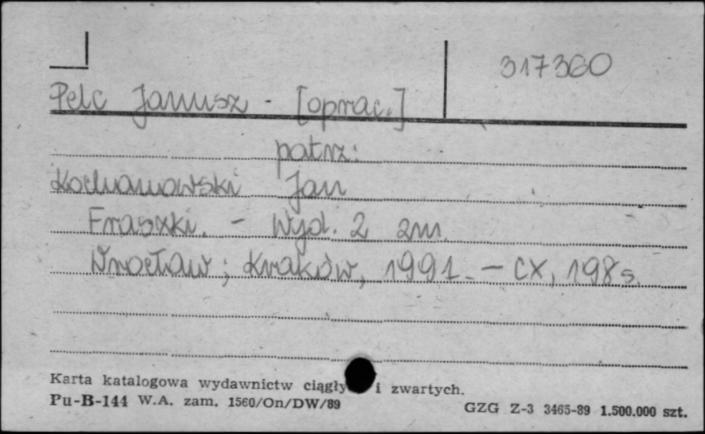 317360
Pelc Janusz - [oprac.]
patrz:
Kochanowski Jan
Fraszki. - Wyd. 2 zm.
Wrocław; Kraków, 1991. - CX, 198 s.
Karta katalogowa wydawnictw ciągły i zwartych.
Pu-B-144 W.A. zam. 1560/On/DW/89
GZG Z-3 3465-89 1.500.000 szt.